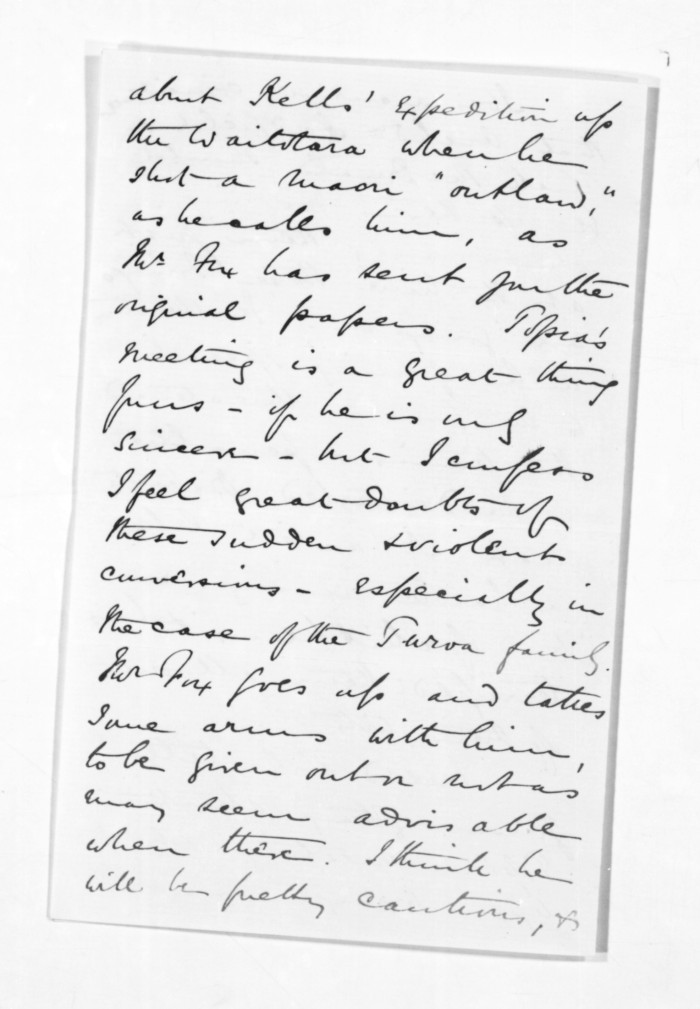 about Kells' expedition up
the Waitotara when he
shot a maori "outlaw,"
as he calls him, as
Mr Fox has sent for the
original papers. Topia's
meeting is a great thing
for us - if he is only
sincere - but I confess
I feel great doubts of
these sudden & violent
conversions - especially in
the case of the Turoa family.
Mr Fox goes up and takes
some arms with him,
to be given out or not as
may seem advisable
when there. I think he
will be pretty cautious, &